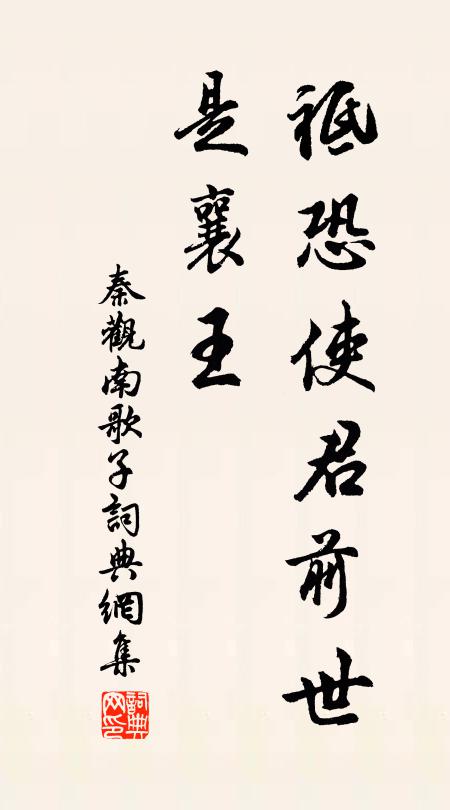 祗恐使君前世
是襄王
秦觀南歌子詞典網集
詞典网印